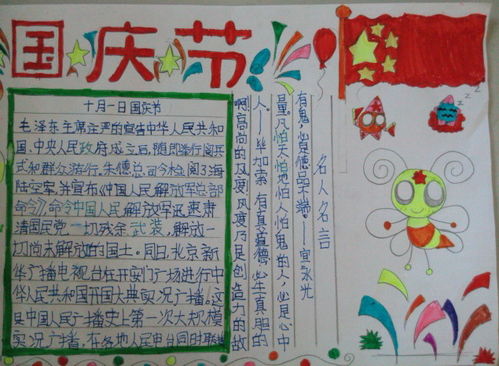 国庆节
十月一日国庆节
毛泽东主席庄严的宣告中华人民共和
国、中央人民政府成立后，随即举行阅兵
式和群众游行。朱德总司令检阅了海
陆空军，并宣布《中国人民解放军总部
命令》，命令中国人民解放军迅速肃
清国民党一切残余武装，解放一
切尚未解放的国土。同日，北京新
华广播电视台在天安门广场进行中
华人民共和国开国大典实况广播。这
是中国人民广播史上第一次大规模
实况广播，在各地人民电台同时联播
名人名言
有鬼，必是德品不端——宣永光
量。凡怕天怕地怕人怕鬼的人，必是心中
人——毕加索 有真道德，必生真胆
啊，高尚的风度，风度乃是创造力的敌